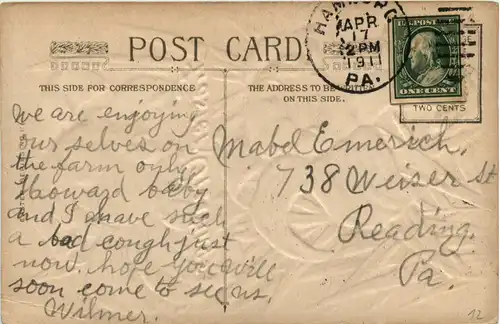 POST CARD
THIS SIDE FOR CORRESPONDENCE
THE ADDRESS TO BE WRITTEN
ON THIS SIDE.
HAMBURG
APR
17
2 PM
1911
PA.
U.S. POSTAGE
ONE CENT
TWO CENTS
We are enjoying
our selves on
the farm only
Howard baby
and I have such
a bad cough just
now. hope you will
soon come to see us.
Wilmer.
Mabel Emerich,
738 Weiser St
Reading.
Pa.
12